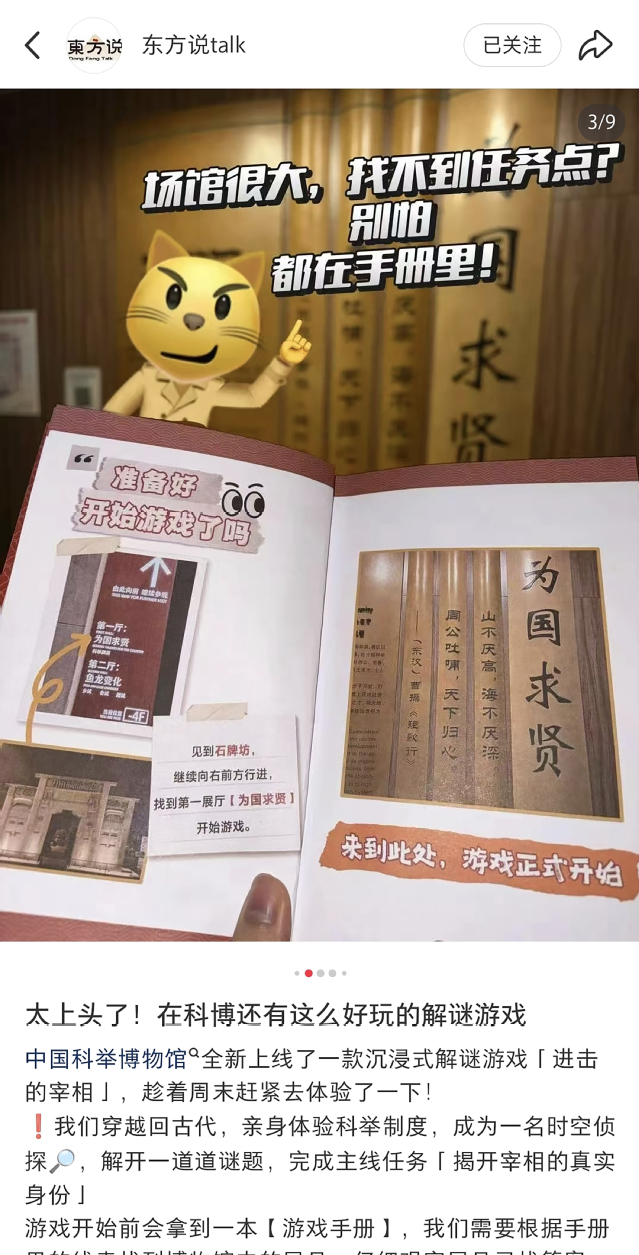 東方说
Dong Fang Talk
东方说talk
已关注
3/9
场馆很大，找不到任务点？
别怕
都在手册里！
国
求
贤
准备好
开始游戏了吗
由此向前 继续参观
第一厅：
为国求贤
第二厅：
鱼龙变化
4F
见到石牌坊，
继续向右前方行进，
找到第一展厅【为国求贤】
开始游戏。
为国求贤
山不厌高，海不厌深。
周公吐哺，天下归心。
——〔东汉〕曹操《短歌行》
来到此处，游戏正式开始
太上头了！在科博还有这么好玩的解谜游戏
中国科举博物馆全新上线了一款沉浸式解谜游戏「进击
的宰相」，趁着周末赶紧去体验了一下！
❗我们穿越回古代，亲身体验科举制度，成为一名时空侦
探🔎，解开一道道谜题，完成主线任务「揭开宰相的真实
身份」
游戏开始前会拿到一本【游戏手册】，我们需要根据手册